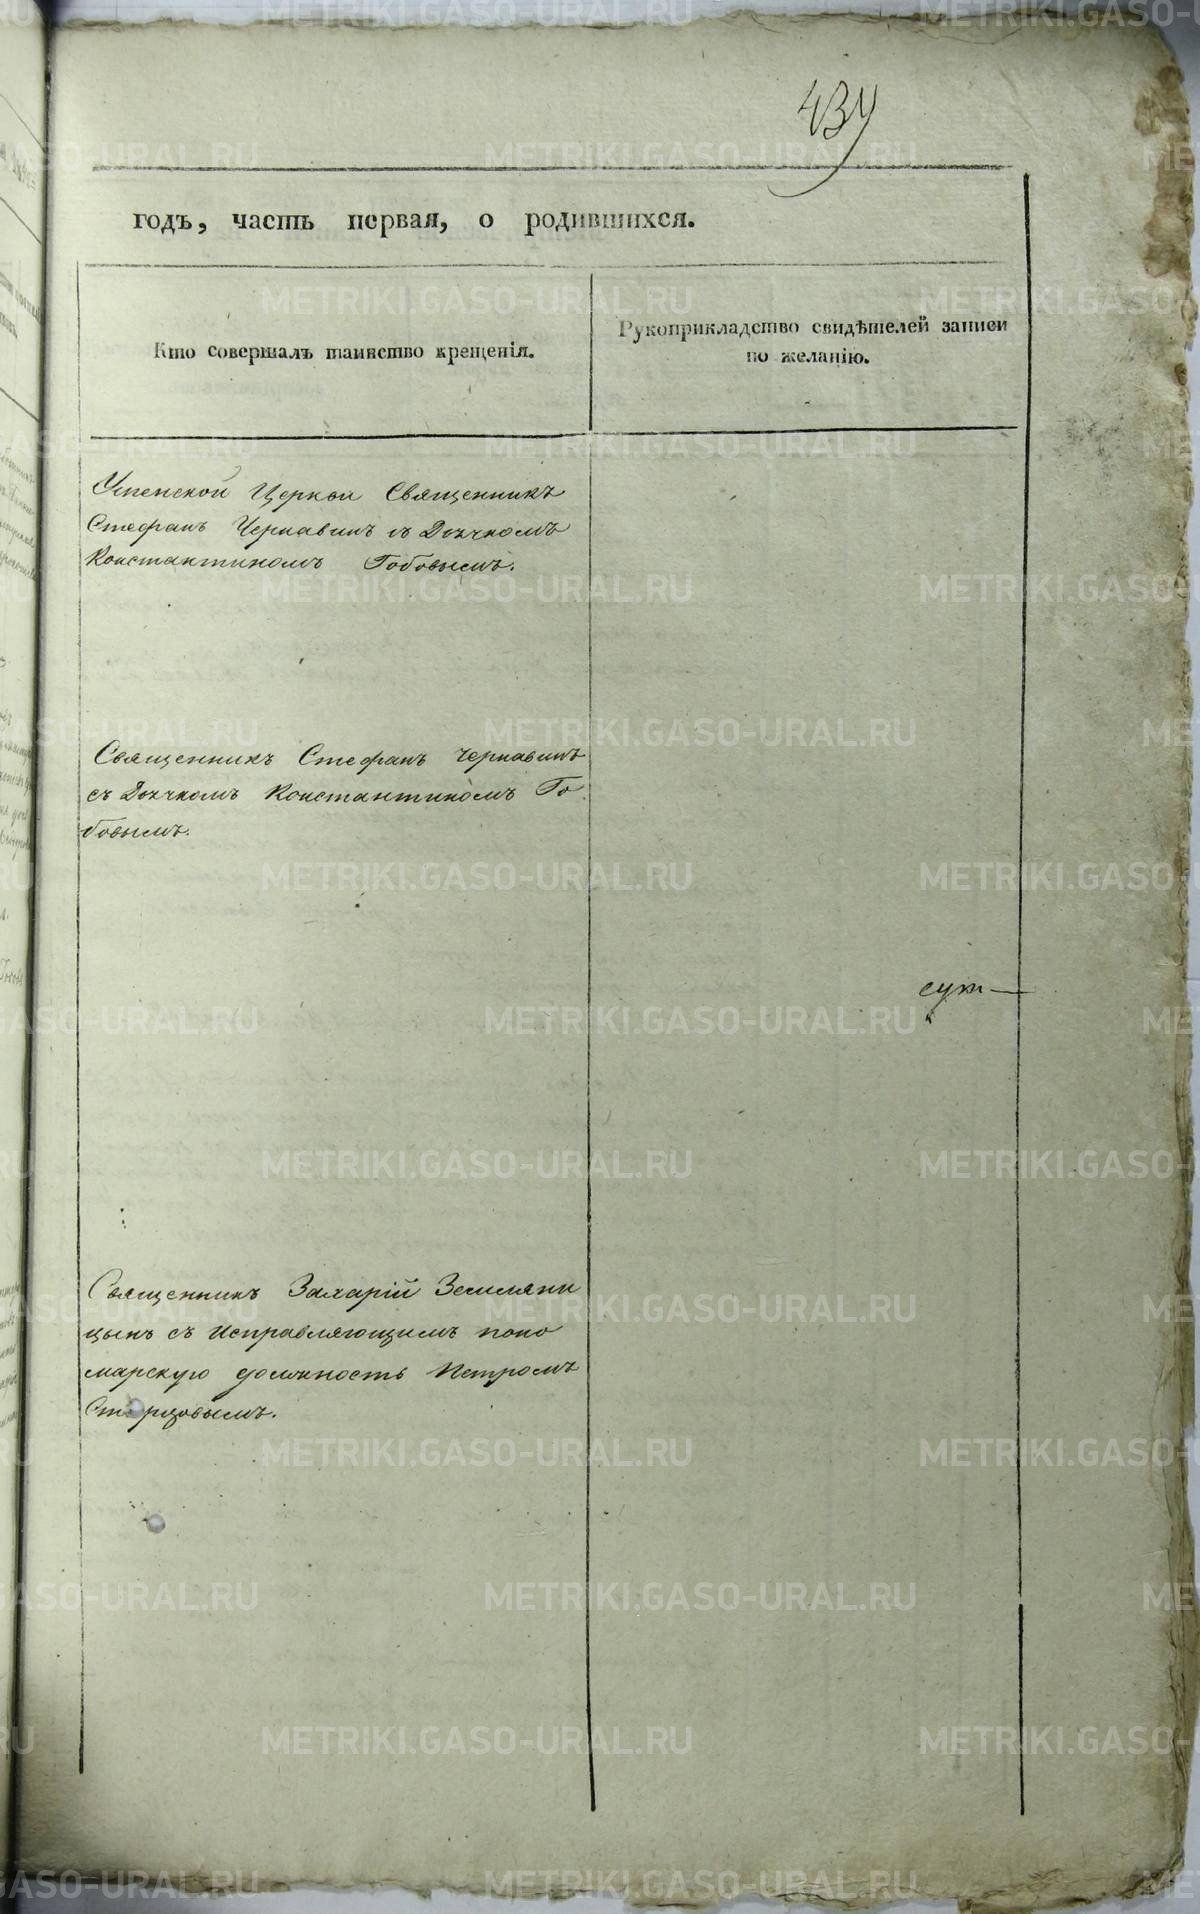 434
годъ, часть первая, о родившихся.
Кто совершалъ таинство крещенія.
Рукоприкладство свидѣтелей записи
по желанію.
Успенской Церкви Священникъ
Стефанъ Чернавинъ съ Дьячкомъ
Константиномъ Гобовымъ.
Священникъ Стефанъ Чернавинъ
съ Дьячкомъ Константиномъ Го
бовымъ.
Священникъ Захарій Земляни
цынъ съ исправляющимъ поно
марскую должность Петромъ
METRIKI.GASO-URAL.RU